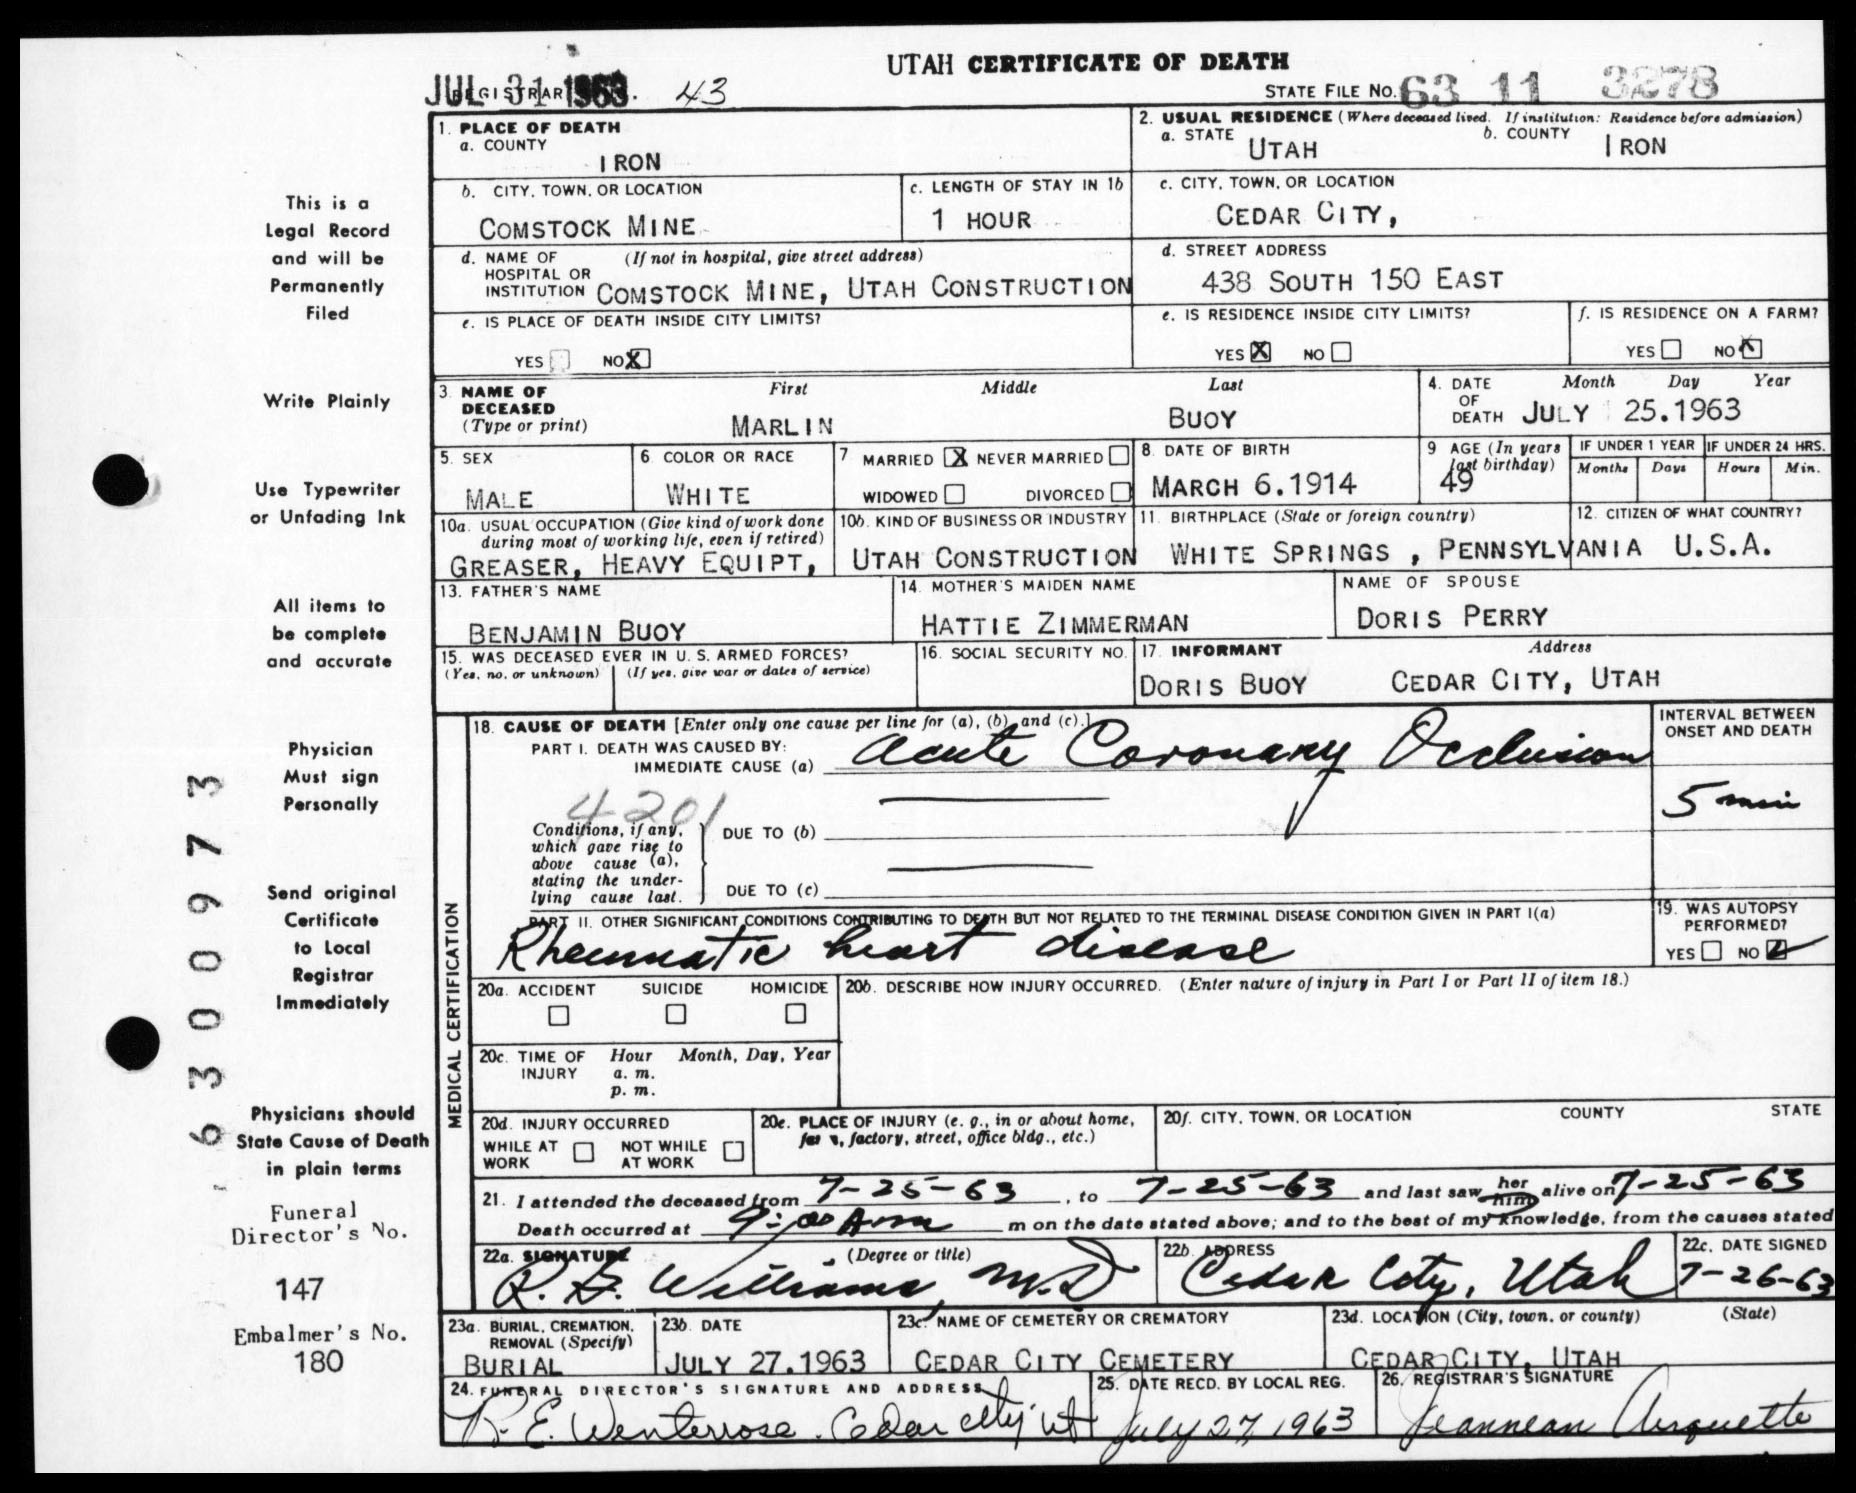 UTAH CERTIFICATE OF DEATH
JUL 31 1963 REGISTRAR 43 STATE FILE NO. 63 11 3278
1. PLACE OF DEATH
a. COUNTY
IRON
2. USUAL RESIDENCE (Where deceased lived. If institution: Residence before admission)
a. STATE UTAH b. COUNTY IRON
b. CITY, TOWN, OR LOCATION
COMSTOCK MINE
c. LENGTH OF STAY IN 1b
1 HOUR
c. CITY, TOWN, OR LOCATION
CEDAR CITY,
d. NAME OF HOSPITAL OR INSTITUTION (If not in hospital, give street address)
COMSTOCK MINE, UTAH CONSTRUCTION
d. STREET ADDRESS
438 SOUTH 150 EAST
e. IS PLACE OF DEATH INSIDE CITY LIMITS?
YES NO X
e. IS RESIDENCE INSIDE CITY LIMITS?
YES X NO
f. IS RESIDENCE ON A FARM?
YES NO X
3. NAME OF DECEASED (Type or print)
First Middle Last
MARLIN BUOY
4. DATE OF DEATH Month Day Year
JULY 25.1963
5. SEX
MALE
6. COLOR OR RACE
WHITE
7. MARRIED X NEVER MARRIED
WIDOWED DIVORCED
8. DATE OF BIRTH
MARCH 6.1914
9 AGE (In years last birthday)
49
IF UNDER 1 YEAR IF UNDER 24 HRS.
Months Days Hours Min.
10a. USUAL OCCUPATION (Give kind of work done during most of working life, even if retired)
GREASER, HEAVY EQUIPT,
10b. KIND OF BUSINESS OR INDUSTRY
UTAH CONSTRUCTION
11. BIRTHPLACE (State or foreign country)
WHITE SPRINGS , PENNSYLVANIA
12. CITIZEN OF WHAT COUNTRY?
U.S.A.
13. FATHER'S NAME
BENJAMIN BUOY
14. MOTHER'S MAIDEN NAME
HATTIE ZIMMERMAN
NAME OF SPOUSE
DORIS PERRY
15. WAS DECEASED EVER IN U. S. ARMED FORCES?
(Yes, no, or unknown) (If yes, give war or dates of service)
16. SOCIAL SECURITY NO.
17. INFORMANT Address
DORIS BUOY CEDAR CITY, UTAH
MEDICAL CERTIFICATION
18. CAUSE OF DEATH [Enter only one cause per line for (a), (b), and (c).]
PART I. DEATH WAS CAUSED BY:
IMMEDIATE CAUSE (a) Acute Coronary Occlusion
INTERVAL BETWEEN ONSET AND DEATH
5 min
4201
Conditions, if any, which gave rise to above cause (a), stating the underlying cause last.
DUE TO (b)
DUE TO (c)
PART II. OTHER SIGNIFICANT CONDITIONS CONTRIBUTING TO DEATH BUT NOT RELATED TO THE TERMINAL DISEASE CONDITION GIVEN IN PART I(a)
Rheumatic heart disease
19. WAS AUTOPSY PERFORMED?
YES NO
20a. ACCIDENT SUICIDE HOMICIDE
20b. DESCRIBE HOW INJURY OCCURRED. (Enter nature of injury in Part I or Part II of item 18.)
20c. TIME OF INJURY Hour Month, Day, Year
a. m.
p. m.
20d. INJURY OCCURRED
WHILE AT WORK NOT WHILE AT WORK
20e. PLACE OF INJURY (e. g., in or about home, factory, street, office bldg., etc.)
20f. CITY, TOWN, OR LOCATION COUNTY STATE
21. I attended the deceased from 7-25-63, to 7-25-63 and last saw her him alive on 7-25-63
Death occurred at 9:00 Am m on the date stated above; and to the best of my knowledge, from the causes stated
22a. SIGNATURE (Degree or title)
R. G. Williams, M.D
22b. ADDRESS
Cedar City, Utah
22c. DATE SIGNED
7-26-63
23a. BURIAL, CREMATION, REMOVAL (Specify)
BURIAL
23b. DATE
JULY 27.1963
23c. NAME OF CEMETERY OR CREMATORY
CEDAR CITY CEMETERY
23d. LOCATION (City, town, or county) (State)
CEDAR CITY, UTAH
24. FUNERAL DIRECTOR'S SIGNATURE AND ADDRESS
R. E. Wenterrose. Cedar City Ut
25. DATE RECD. BY LOCAL REG.
July 27, 1963
26. REGISTRAR'S SIGNATURE
Jeannean Arquette
This is a
Legal Record
and will be
Permanently
Filed
Write Plainly
Use Typewriter
or Unfading Ink
All items to
be complete
and accurate
Physician
Must sign
Personally
Send original
Certificate
to Local
Registrar
Immediately
Physicians should
State Cause of Death
in plain terms
Funeral
Director's No.
147
Embalmer's No.
180
6300973